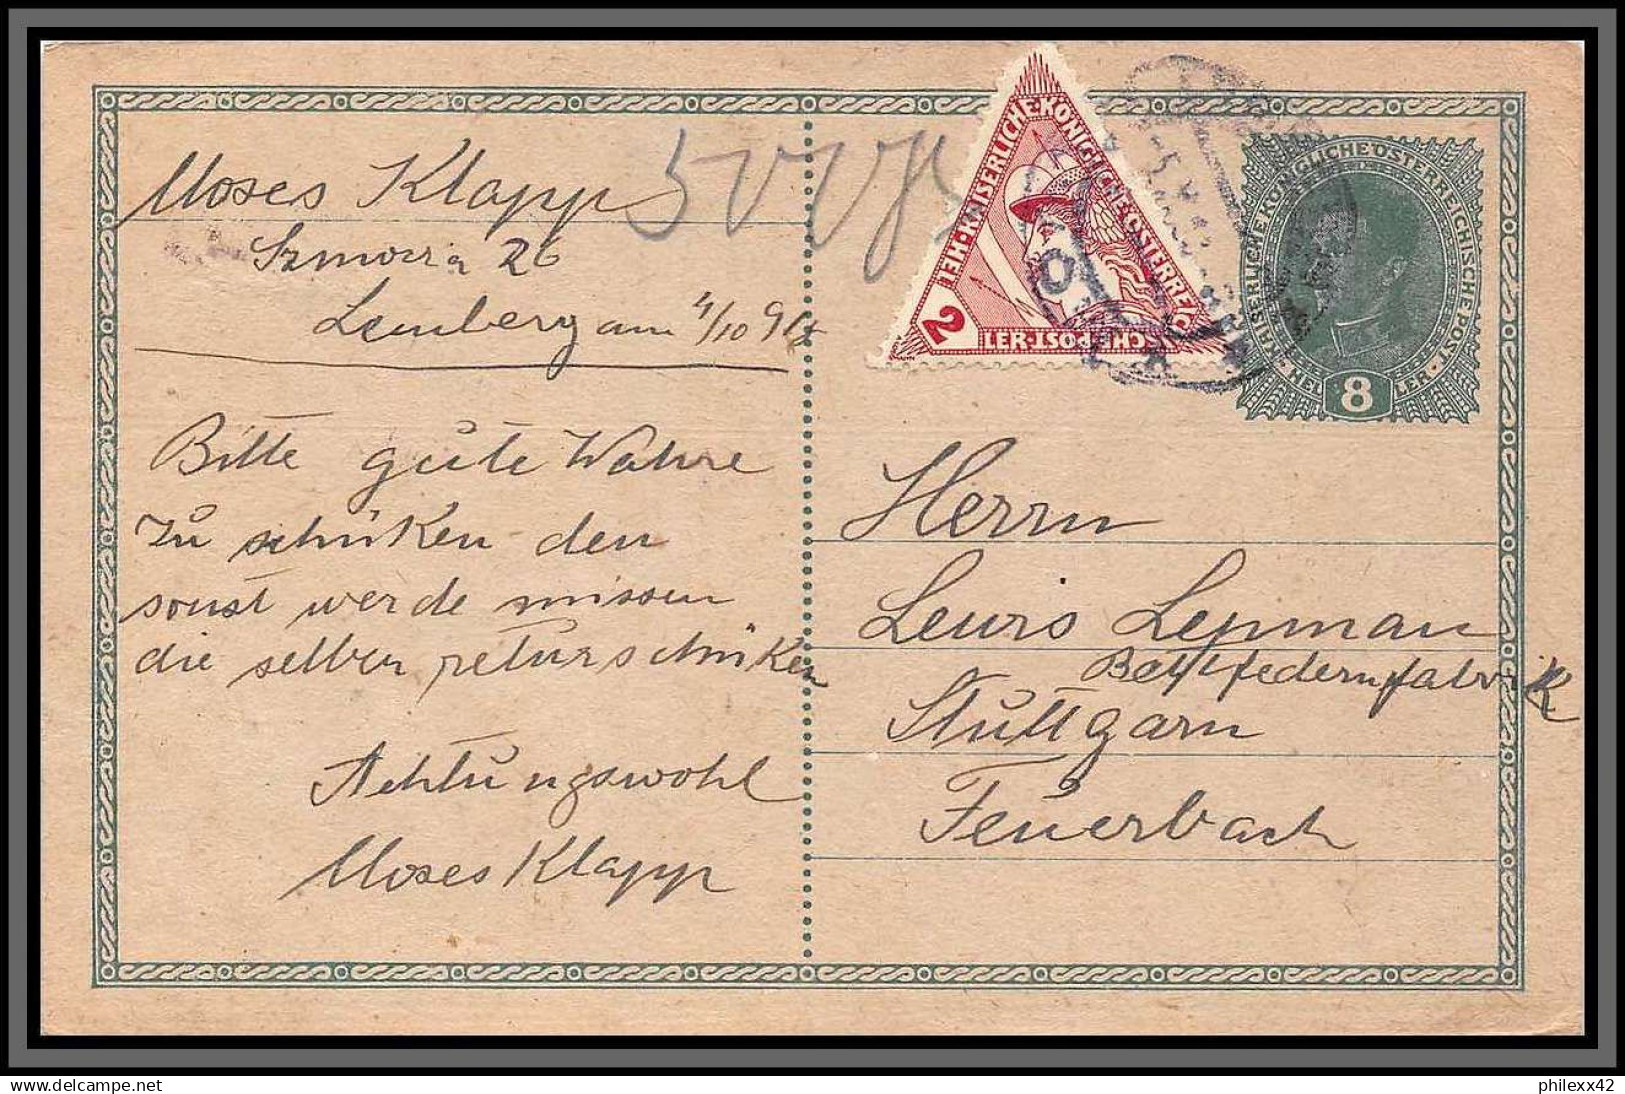 Moses Klapp
26
Lemberg am 4/10 917
Bitte gute Wahre
zu schüken den
sonst werde missen
die selben returschüken
Achtungswohl
Moses Klapp
KAISERLICHE·KÖNIGLICHE·ÖSTERREICHISCHE·POST
2 HELLER
KAISERLICHE KÖNIGLICHE ÖSTERREICHISCHE POST
8 HELLER
Herrn
Lewis Lepman
Bettfedernfabrik
Stuttgarn
Feuerbach
philexx42